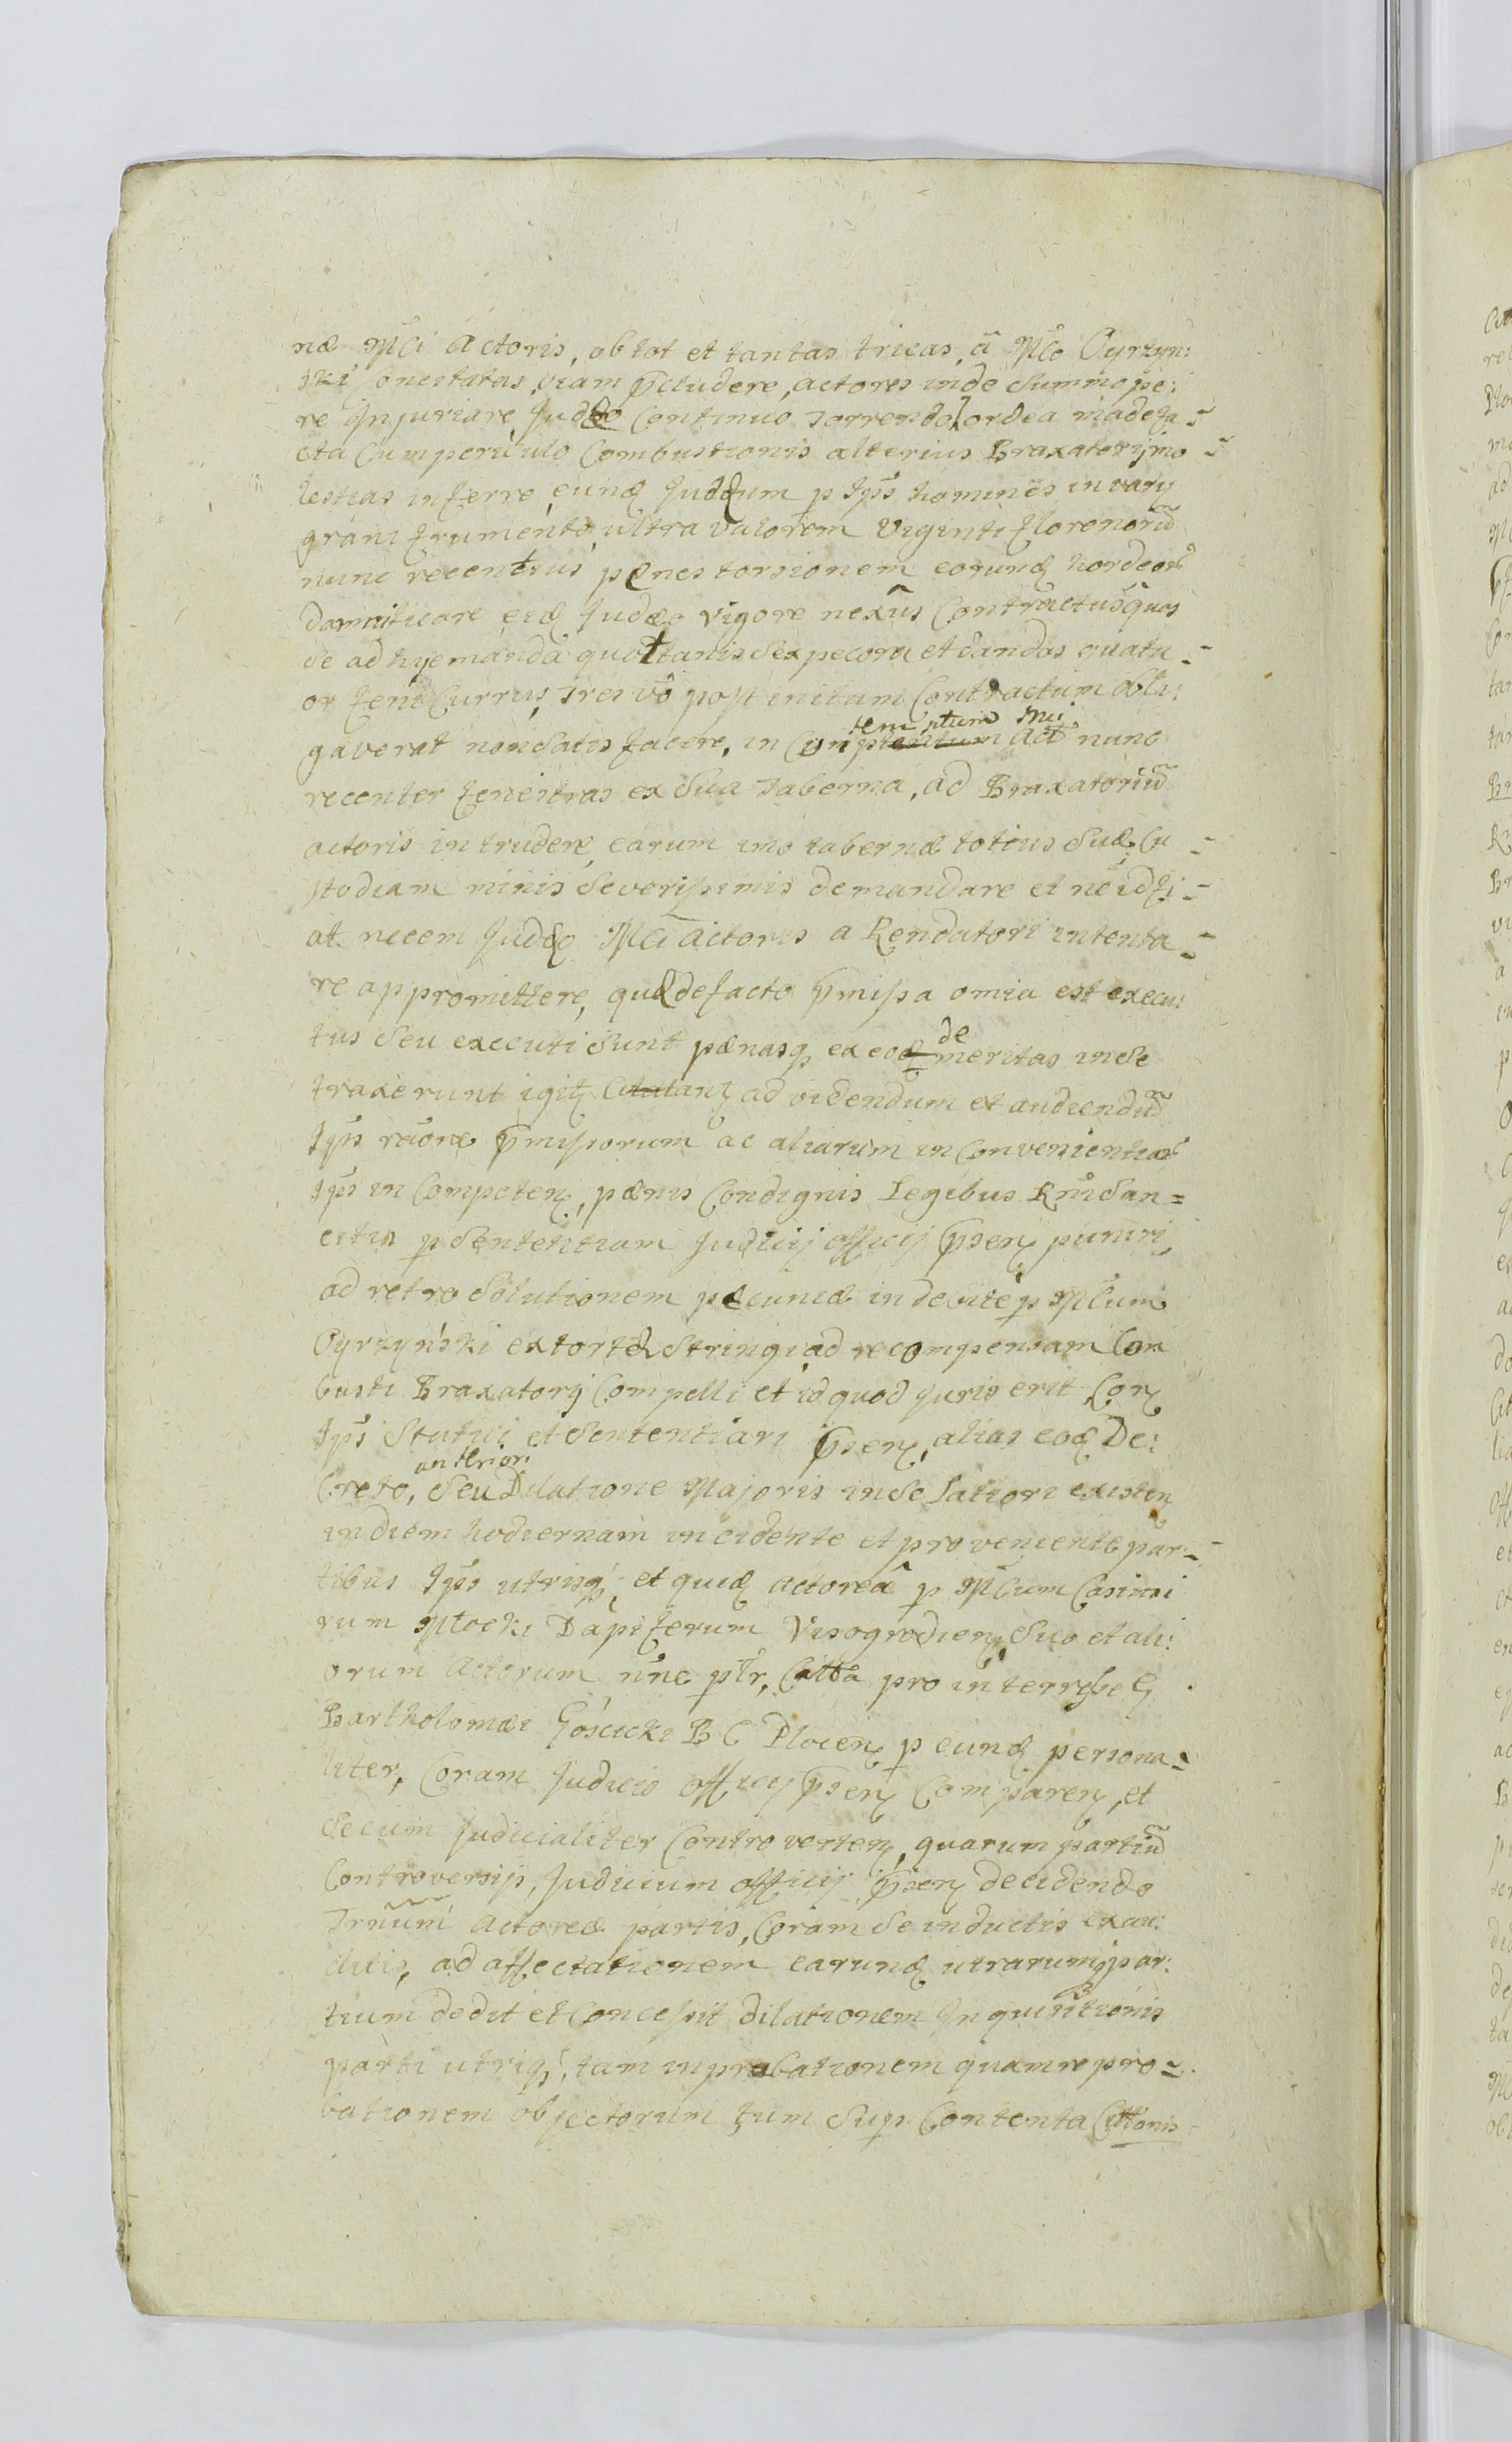 næ Mci Actoris, ob tot et tantas tricas, a Mco Cyrzyn:
ski Concitatas, viam p̄cludere, actores inde Summope:
re Injuriare, Judæo Continuo Torrendo hordea madefa-
cta Cum periculo Combustionis alterius Braxatorij mo-
lestias inferre, eunq Judæum p Ips homines in varij
grani frumento, ultra valorem Viginti florenorū
nunc recentius pænes torsionem eorunq hordeor
Damnificare eidq Judæo vigore nexûs Contractûs quos
Se ad hyemanda quottannis Sex pecora et dandos quatu-
or feni Currus, Tres vo post initum Contractum obli:
gaverat non Satis facere, in Contemptum Sui Act nunc
recenter fenestras ex Sua Taberna, ad Braxatoriū
actoris intrudere, earum imo tabernæ totius Suæ Cu-
stodiam minis Severissimis demandare et ne id fi-
at necem Judæo Mci Actoris a Rendatori intenta-
re appromittere, quæ de facto p̄missa omia est execu:
tus Seu executi Sunt pænasq ex eoq demeritas in Se
traxerunt igitz Citatanz ad videndum et audiendū
Ips raône p̄missorum ac aliarum inConvenientiar
Ips in Competenz, pænis Condignis Legibus Rni San=
citis p Sententiam Judicij officij p̄senz puniri,
ad retro Solutionem pecuniæ indebite p Mcum
Cyrzyński extortæ Stringi, ad recompensam Com
busti Braxatorij Compelli et id quod Juris erit Corz
Ips Statui et Sententiari p̄senz, alias eoq De:
Creto, anteriori Seu Dilatione Majoris inde Latiori existenz
in diem hodiernam incidente et proveniente par-
tibus Ips utrisq, et quiq actoreâ p Mcum Casimi
rum Młocki Dapiferum Visogrodienz Suo et ali:
orum Actorum nne ptr, Citta pro interesse G
Bartholomæi Gościcki B C Plocenz p eunq persona-
liter, Coram Judicio officij p̄senz Comparenz, et
Secum Judicialiter Controvertenz, quarum partiū
Controversijs, Judicium officij p̄senz decidendo
Trnūm actoreæ partis, Coram Se inductis exau:
ditis, ad affectationem earunq utrarumq par:
tium dedit et Concessit dilationem Inquisitionis
parti utriq, tam in probationem quam repro-
bationem objectorum tum Sup Contenta Cittonis